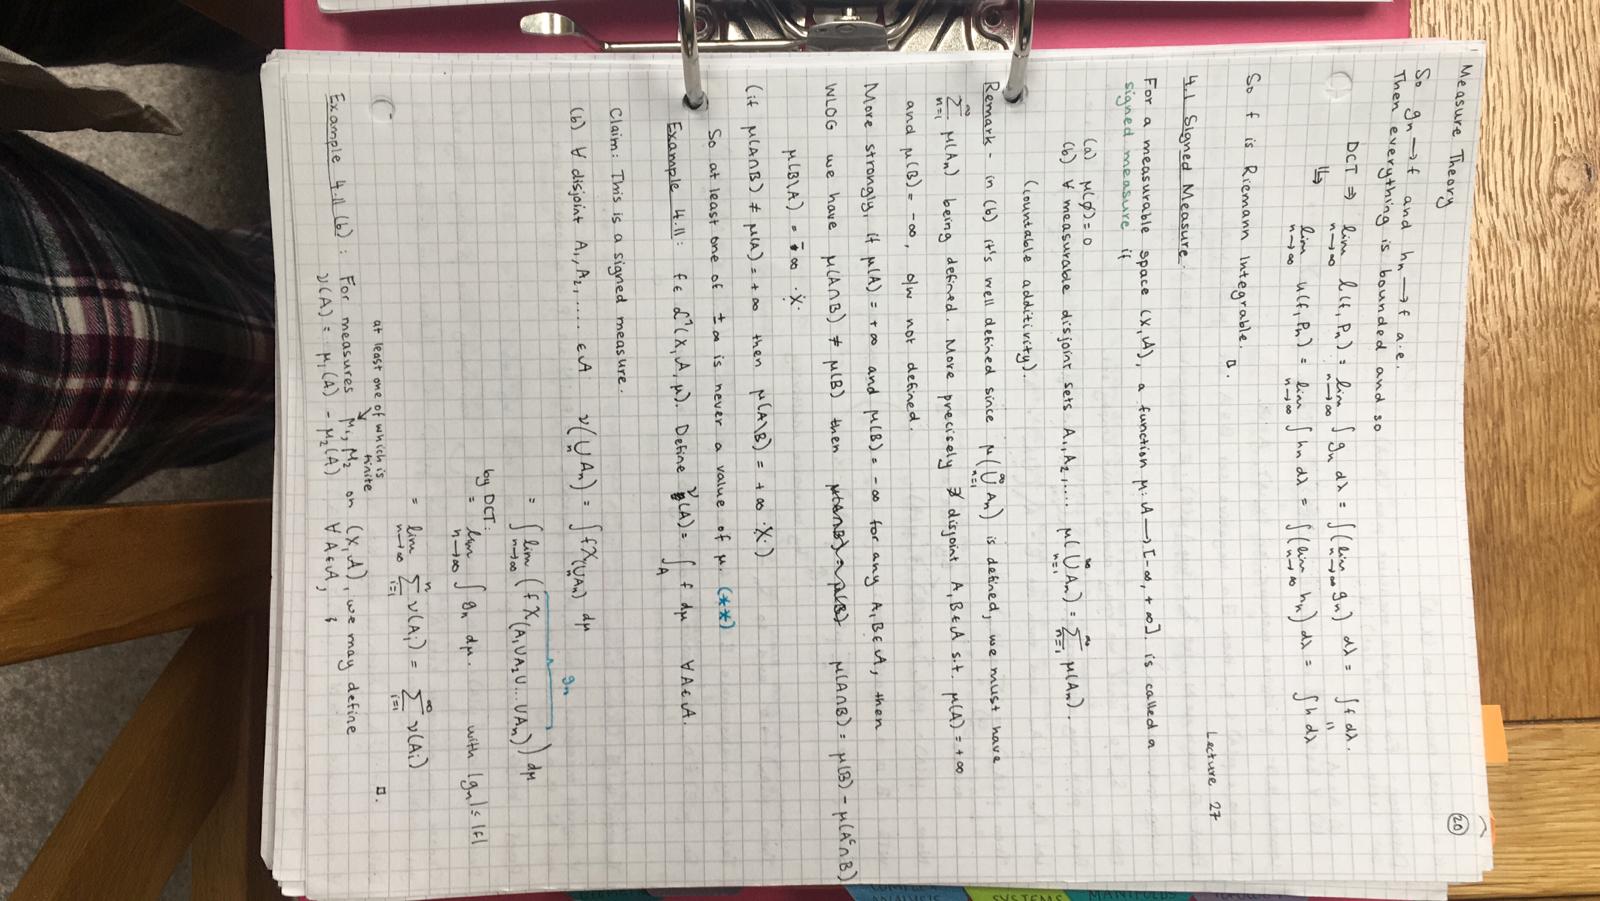 Measure Theory
20
So gn → f and hn → f a.e.
Then everything is bounded and so
DCT ⇒ lim_{n→∞} L(f, Pn) = lim_{n→∞} ∫ gn dλ = ∫ (lim_{n→∞} gn) dλ = ∫ f dλ.
⇓ lim_{n→∞} U(f, Pn) = lim_{n→∞} ∫ hn dλ = ∫ (lim_{n→∞} hn) dλ = ∫ h dλ
So f is Riemann Integrable. □.
Lecture 27
4.1 Signed Measure.
For a measurable space (X, A), a function μ: A → [-∞, +∞] is called a
signed measure if
(a) μ(∅) = 0
(b) ∀ measurable disjoint sets A1, A2, .... μ(⋃_{n=1}^∞ An) = Σ_{n=1}^∞ μ(An).
(countable additivity).
Remark - in (b) it's well defined since μ(⋃_{n=1}^∞ An) is defined, we must have
Σ_{n=1}^∞ μ(An) being defined. More precisely ∄ disjoint A, B ∈ A s.t. μ(A) = +∞
and μ(B) = -∞, o/w not defined.
More strongly, if μ(A) = +∞ and μ(B) = -∞ for any A, B ∈ A, then
WLOG we have μ(A∩B) ≠ μ(B) then μ(A∩B) = μ(B) - μ(Aᶜ∩B)
μ(B\A) = -∞ ·X·
(if μ(A∩B) ≠ μ(A) = +∞ then μ(A\B) = +∞ ·X·)
So at least one of ±∞ is never a value of μ. (**)
Example 4.11: f ∈ L¹(X, A, μ). Define ν(A) = ∫_A f dμ ∀ A ∈ A.
Claim: This is a signed measure.
(b) ∀ disjoint A1, A2, ..... ∈ A ν(⋃_n An) = ∫ fχ(⋃_n An) dμ
gn
= ∫ lim_{n→∞} (fχ(A1∪A2∪...∪An)) dμ
by DCT: = lim_{n→∞} ∫ gn dμ. with |gn| ≤ |f|
= lim_{n→∞} Σ_{i=1}^n ν(Ai) = Σ_{i=1}^∞ ν(Ai)
□.
at least one of which is
finite
Example 4.11 (b): For measures μ1, μ2 on (X, A), we may define
ν(A) = μ1(A) - μ2(A) ∀ A ∈ A,
SYSTEMS
MANIFOLDS
ANALYSIS